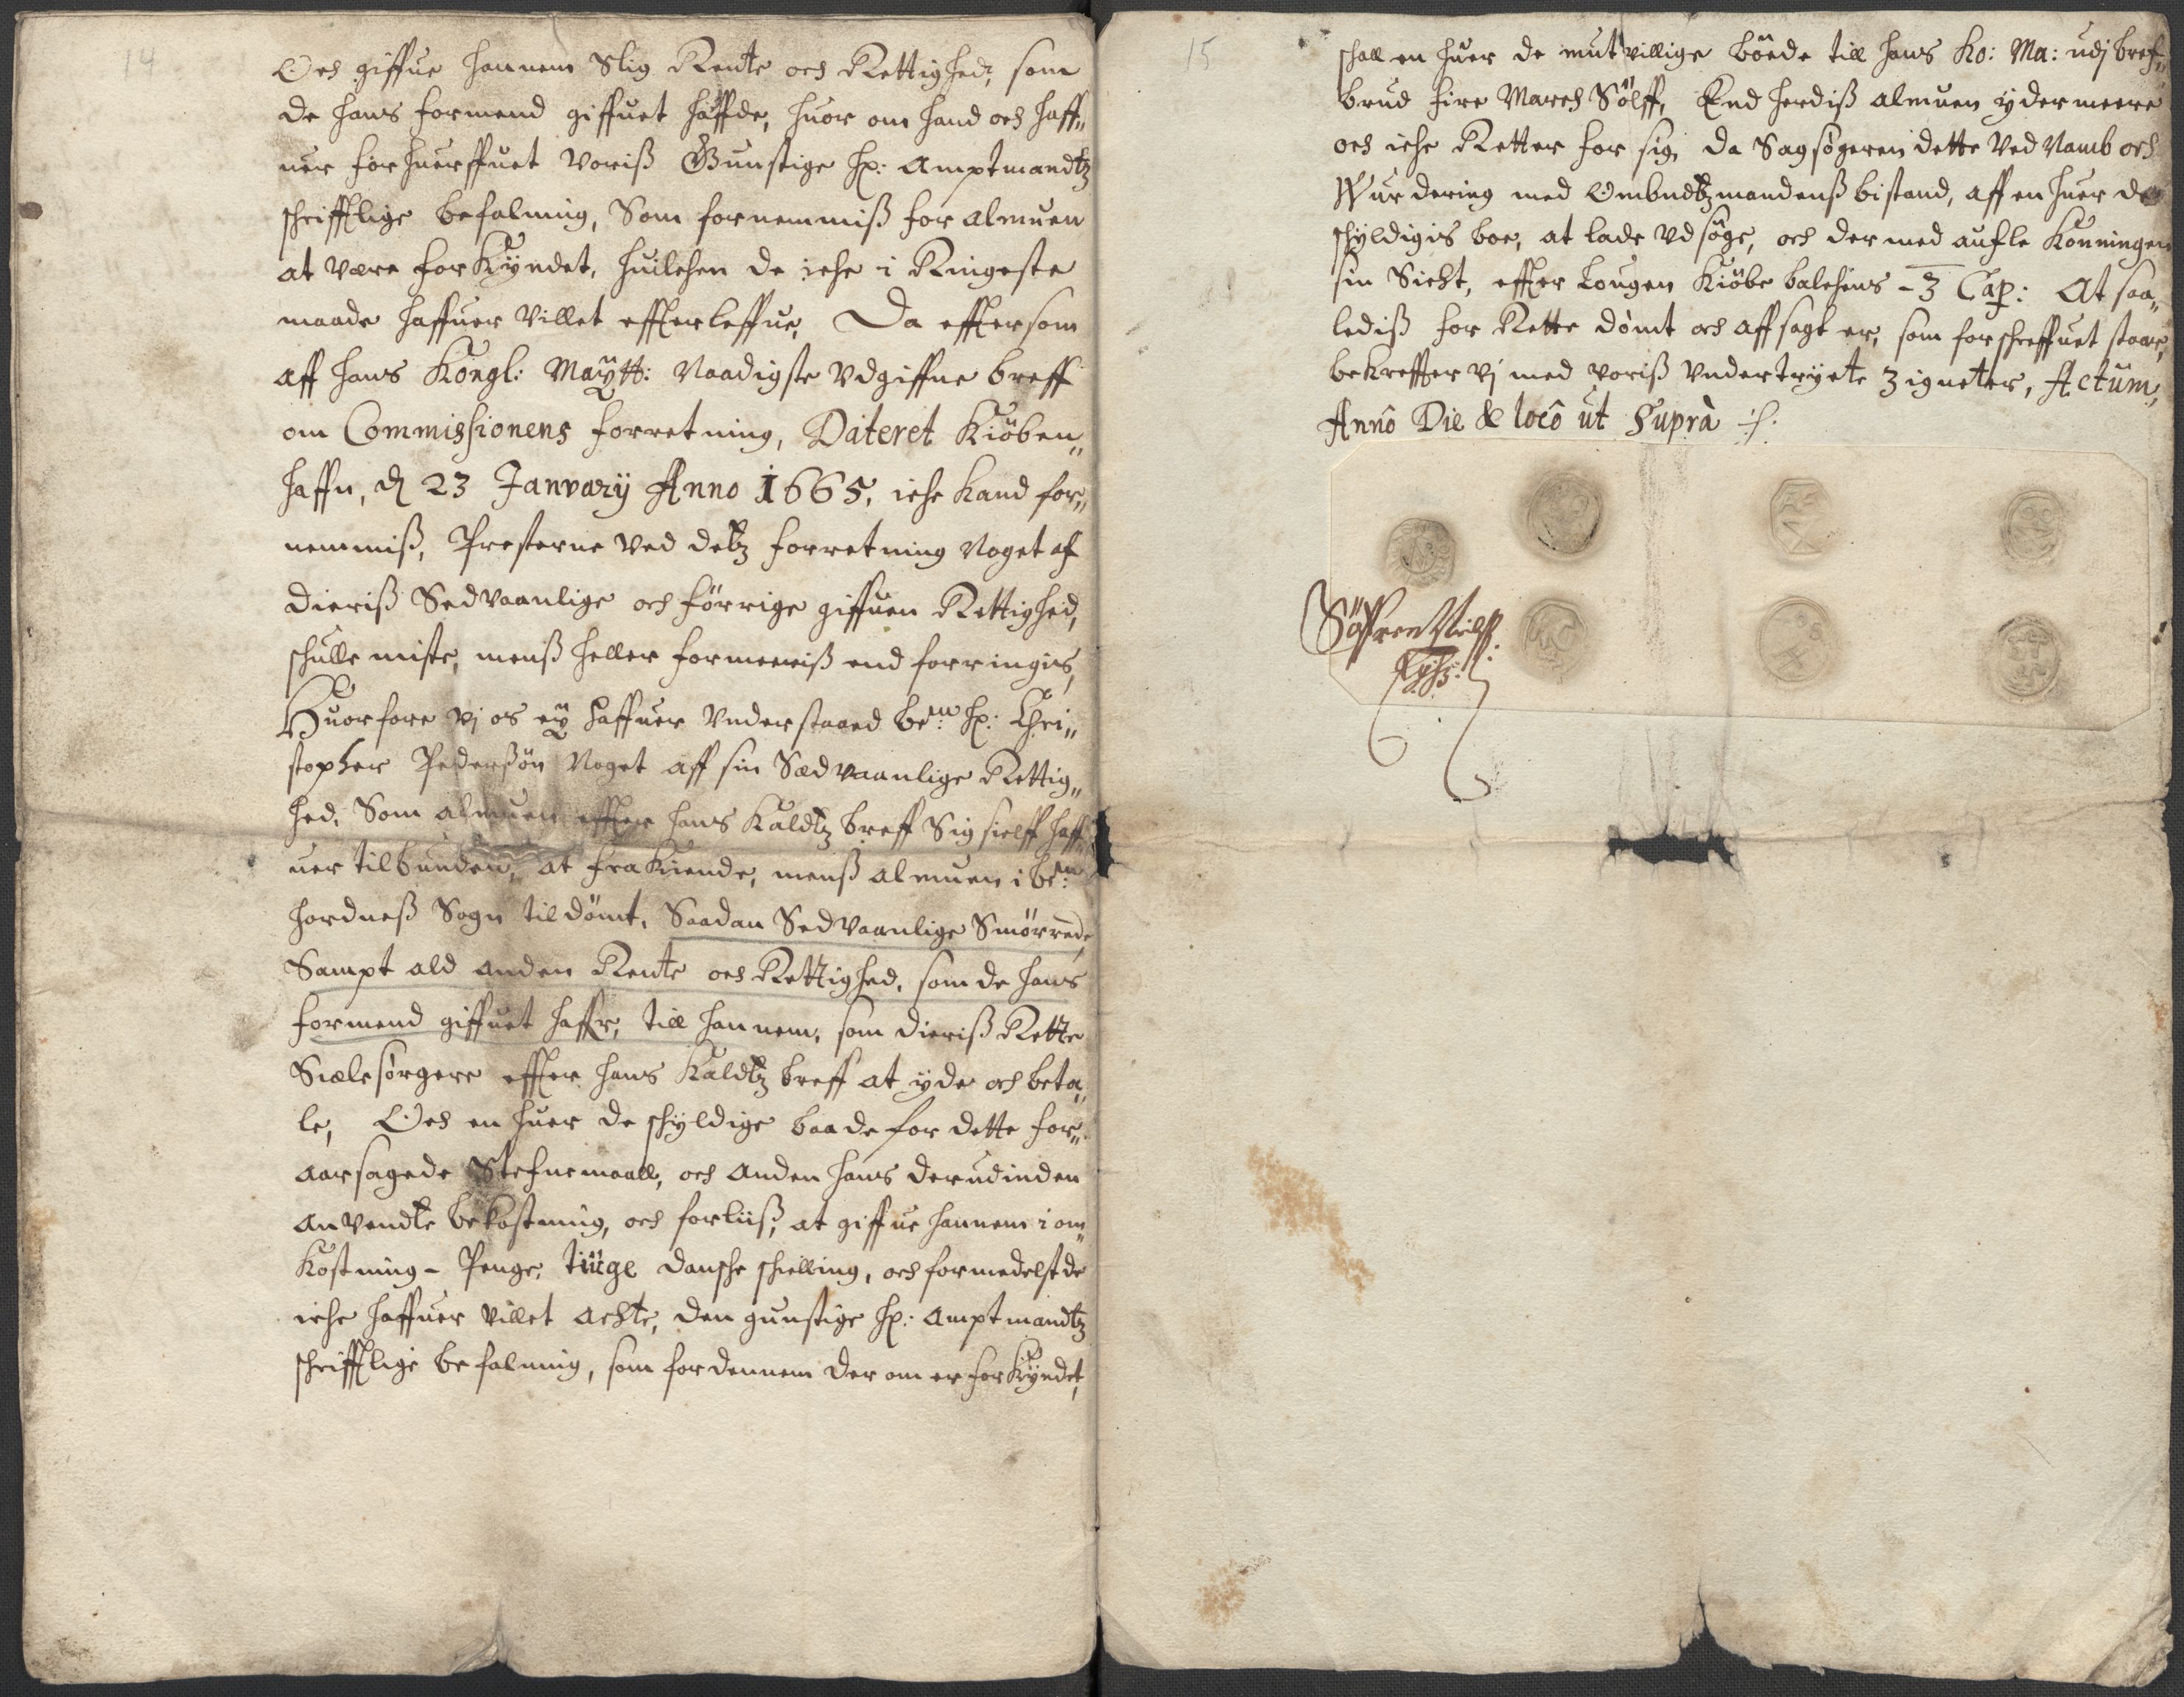 14
Och giffue hannem Slig Rente och Rettighed, som
de hans formend giffuet haffde, huor om hand och haff„
uer forhuerffuet voriß Gunstige Hr: Amptmandtz
schrifftlige befalning, Som fornemmiß for almuen
at være forkyndet, huilchen de iche i Ringeste
maade haffuer villet effterleffue, Da efftersom
aff hans Kongl: Maÿtt: Naadigste Vdgiffne breff
om Commissionens forretning, Dateret Kiöben„
haffn, d 23 Janvarij Anno 1665, iche kand for„
nemmiß, Presterne ved detz forretning Noget af
dieriß Sedvaanlige och förrige giffuen Rettighed,
schulle miste, menß heller formeeriß end forringis,
Huorfore vj os eÿ haffuer Vnderstaaed bem:te Hr: Chri„
stopher Pederßön Noget aff sin Sædvaanlige Rettig„
hed, Som almuen effter hans Kaldtz breff Sig sielff haff„
uer tilbunden, at frakiende, menß almuen i bem:te
Hordneß Sogn tildömt, Saadan Sedvaanlige Smörrede,
Sampt ald anden Rente och Rettighed, som de hans
formend giffuet haffr, till hannem, som dieriß Rette
Siælesörgere effter hans Kaldtz breff at yde och beta„
le, Och en huer de schyldige baade for dette for„
aarsagede Stefnemaall, och anden hans derudinden
anvendte bekostning, och forliiß, at giffue hannem i om„
kostning - Penge, tiüge dansche schielling, och formedelst de
iche haffuer villet achte, den gunstige Hr: Amptmandtz
schrifftlige befalning, som for dennem der om er forkyndet,
15
schall en huer de mutvillige böede till hans Ko: Ma: udj bref„
brud fire March Sölff, End herdiß almuen ydermeere
och iche Retter for sig, da Sagsögeren dette Ved Namb och
Wurdering med Ombudtzmandenß bistand, aff en huer de
schyldigis boe, at lade vdsöge, och der med aufle Konningen
sin Sicht, effter Lougen Kiöbe balchens - 3 Cap: At saa„
lediß for Rette dömt och affsagt er, som forschreffuet staar,
bekreffter vj med voriß vndertrycte Zigneter, Actum,
Annô Die & locô ut Suprà
Söffren Nielß: